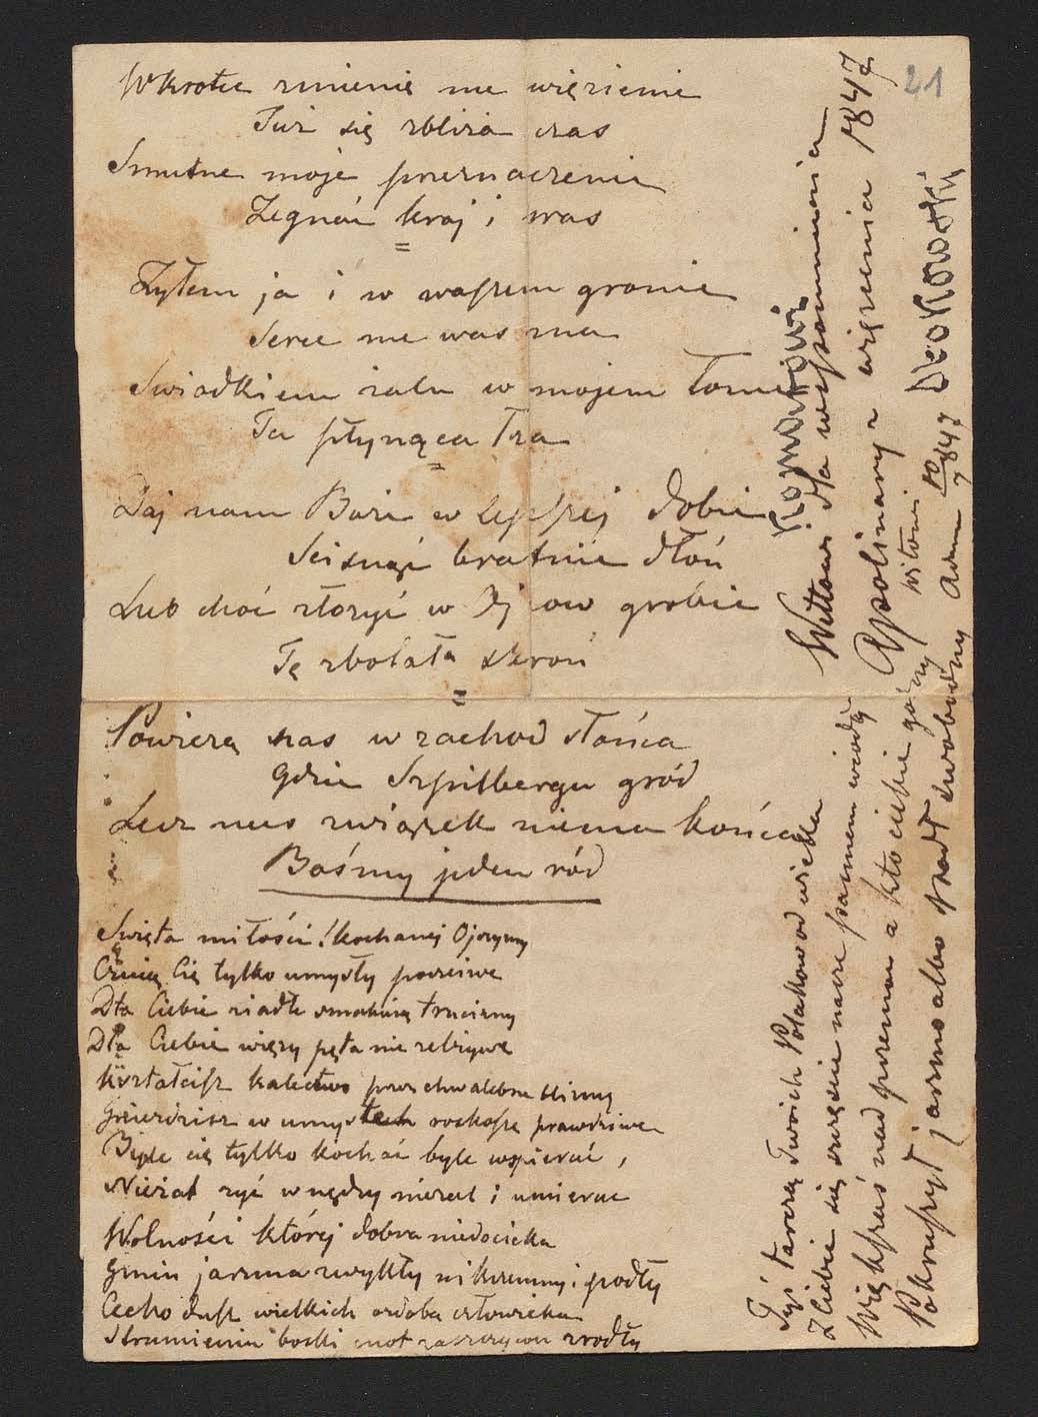 21
Wkrotce zmienię me więzienie
Już się zbliża czas
Smutne moje przeznaczenie
Żegnać kraj i was
Żyłem ja i w waszem gronie
Serce me was zna
Swiadkiem żalu w mojem łonie
Ta płynąca łza
Daj nam Boże w lepszej dobie
Scisnąć bratnie dłoń
Lub choć złożyć w Ojcow grobie
Tę zbolałą skroń
Powiezą nas w zachod słońca
gdzie Szpilbergu gród
Lecz nas związek niema końca
Bośmy jeden ród
Święta miłości! kochanej Ojczyzny
Czują Cię tylko umysły poczciwe
Dla Ciebie zjadłe smakują trucizny
Dla Ciebie więzy pęta nie zelżywe
Kształcisz kalectwo przez chwalebne blizny
gnieździsz w umysłach rozkosze prawdziwe
Byle cię tylko kochać byle wspierać,
Nieżal żyć w nędzy nieżal i umierać
Wolności której dobra niedocieka
gmin jarzma zwykły nikczemny i podły
Cecho dusz wielkich ozdobo człowieka
Strumieniu boski cnot zaszczycon zrodły
Tyś tarczą Twoich Polakow od wieka
Z Ciebie się szczęście nasze pasmem wiodło
Większaś nad przemoc a kto ciebie godny
Pokruszył jarzmo albo padł swobodny
Wiktorowi Komarowi
dla wspomnienia
Apolinary z więzienia 1847
Adam
1847